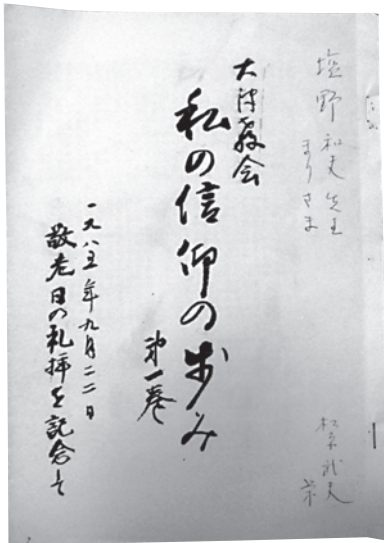 塩野和夫先生
まりさま
大津教会
私の信仰の歩み
第一巻
一九八五年九月二二日
敬老日の礼拝を記念して